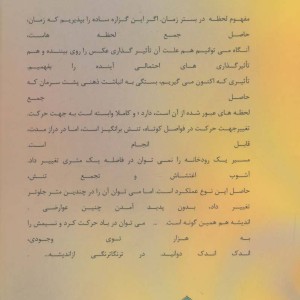 مفهوم لحظه در بستر زمان، اگر این گزاره ساده را بپذیریم که زمان،
حاصل جمع لحظه هاست،
آنگاه می توانیم هم علت آن تأثیرگذاری عکس را روی بیننده و هم
تأثیرگذاری های احتمالی آینده را بفهمیم.
تأثیری که اکنون می گیریم، بستگی به انباشت ذهنی پشت سرمان که
حاصل جمع
لحظه های عبور شده از آن است، دارد؛ و کاملا وابسته است به جهت حرکت.
تغییرجهت حرکت در فواصل کوتاه، تنش برانگیز است، اما در دراز مدت،
قابل انجام است.
مسیر یک رودخانه را نمی توان در فاصله یک متری تغییر داد.
آشوب اغتشاش و تجمع تنش،
حاصل این نوع عملکرد است اما می توان آن را در چندین متر جلوتر
تغییر داد، بدون پدید آمدن چنین عوارضی.
اندیشه هم همین گونه است... می توان در باد حرکت کرد و نسیمش را
به هزار توی وجودی،
اندک اندک دوانید، در ترنگاترنگی ازاندیشه...